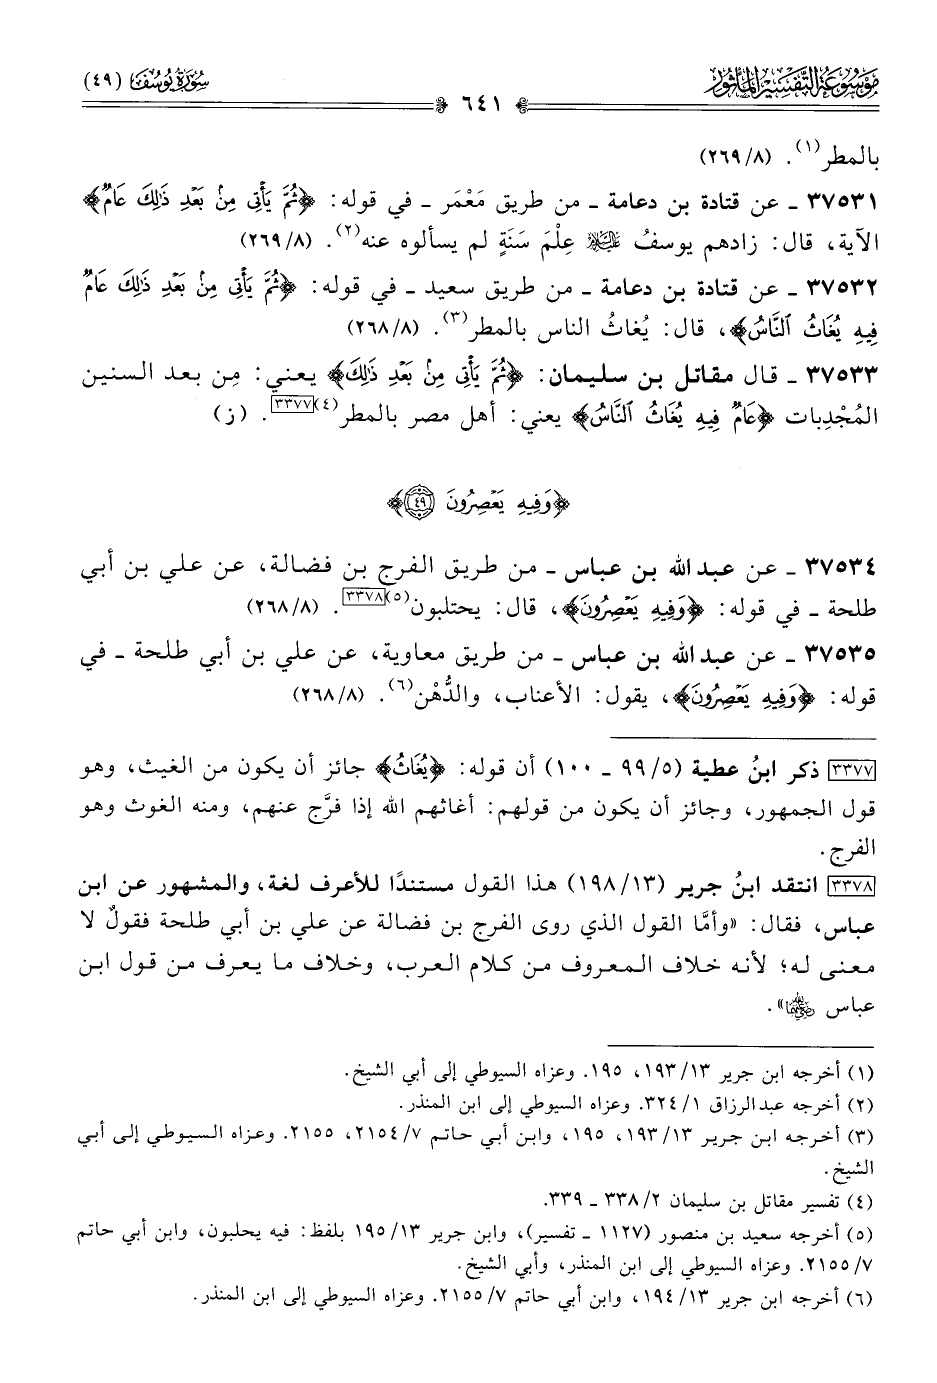 مَوْسُوعَةُ التَّفْسِيرِ المَأْثُورِ
سُورَةُ يُوسُفَ (٤٩)
٦٤١
بالمطر(١). (٢٦٩/٨)
٣٧٥٣١ ـ عن قتادة بن دعامة ـ من طريق مَعْمَر ـ في قوله: ﴿ثُمَّ يَأْتِي مِنْ بَعْدِ ذَٰلِكَ عَامٌ﴾
الآية، قال: زادهم يوسفُ عليه السلام عِلْمَ سَنَةٍ لم يسألوه عنه(٢). (٢٦٩/٨)
٣٧٥٣٢ ـ عن قتادة بن دعامة ـ من طريق سعيد ـ في قوله: ﴿ثُمَّ يَأْتِي مِنْ بَعْدِ ذَٰلِكَ عَامٌ
فِيهِ يُغَاثُ ٱلنَّاسُ﴾، قال: يُغاثُ الناس بالمطر(٣). (٢٦٨/٨)
٣٧٥٣٣ ـ قال مقاتل بن سليمان: ﴿ثُمَّ يَأْتِي مِنْ بَعْدِ ذَٰلِكَ﴾ يعني: مِن بعد السنين
المُجْدِبات ﴿عَامٌ فِيهِ يُغَاثُ ٱلنَّاسُ﴾ يعني: أهل مصر بالمطر(٤)[٣٣٧٧]. (ز)
﴿وَفِيهِ يَعْصِرُونَ ٤٩﴾
٣٧٥٣٤ ـ عن عبدالله بن عباس ـ من طريق الفرج بن فضالة، عن علي بن أبي
طلحة ـ في قوله: ﴿وَفِيهِ يَعْصِرُونَ﴾، قال: يحتلبون(٥)[٣٣٧٨]. (٢٦٨/٨)
٣٧٥٣٥ ـ عن عبدالله بن عباس ـ من طريق معاوية، عن علي بن أبي طلحة ـ في
قوله: ﴿وَفِيهِ يَعْصِرُونَ﴾، يقول: الأعناب، والدُّهْن(٦). (٢٦٨/٨)
[٣٣٧٧] ذكر ابنُ عطية (٩٩/٥ ـ ١٠٠) أن قوله: ﴿يُغَاثُ﴾ جائز أن يكون من الغيث، وهو
قول الجمهور، وجائز أن يكون من قولهم: أغاثهم الله إذا فرَّج عنهم، ومنه الغوث وهو
الفرج.
[٣٣٧٨] انتقد ابنُ جرير (١٩٨/١٣) هذا القول مستندًا للأعرف لغة، والمشهور عن ابن
عباس، فقال: «وأمَّا القول الذي روى الفرج بن فضالة عن علي بن أبي طلحة فقولٌ لا
معنى له؛ لأنه خلاف المعروف من كلام العرب، وخلاف ما يعرف من قول ابن
عباس رضي الله عنهما».
(١) أخرجه ابن جرير ١٩٣/١٣، ١٩٥. وعزاه السيوطي إلى أبي الشيخ.
(٢) أخرجه عبدالرزاق ٣٢٤/١. وعزاه السيوطي إلى ابن المنذر.
(٣) أخرجه ابن جرير ١٩٣/١٣، ١٩٥، وابن أبي حاتم ٢١٥٤/٧، ٢١٥٥. وعزاه السيوطي إلى أبي
الشيخ.
(٤) تفسير مقاتل بن سليمان ٣٣٨/٢ ـ ٣٣٩.
(٥) أخرجه سعيد بن منصور (١١٢٧ ـ تفسير)، وابن جرير ١٩٥/١٣ بلفظ: فيه يحلبون، وابن أبي حاتم
٢١٥٥/٧. وعزاه السيوطي إلى ابن المنذر، وأبي الشيخ.
(٦) أخرجه ابن جرير ١٩٤/١٣، وابن أبي حاتم ٢١٥٥/٧. وعزاه السيوطي إلى ابن المنذر.